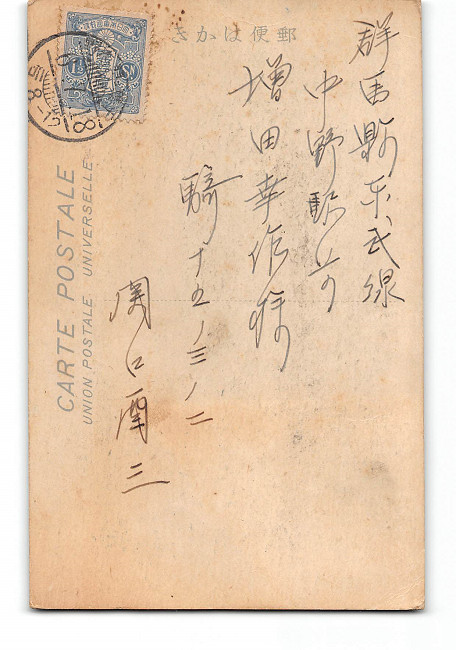 郵便はがき
群馬縣東武線
中野駅前
増田幸作様
騎十五ノ三ノ二
関口
三
CARTE POSTALE
UNION POSTALE UNIVERSELLE